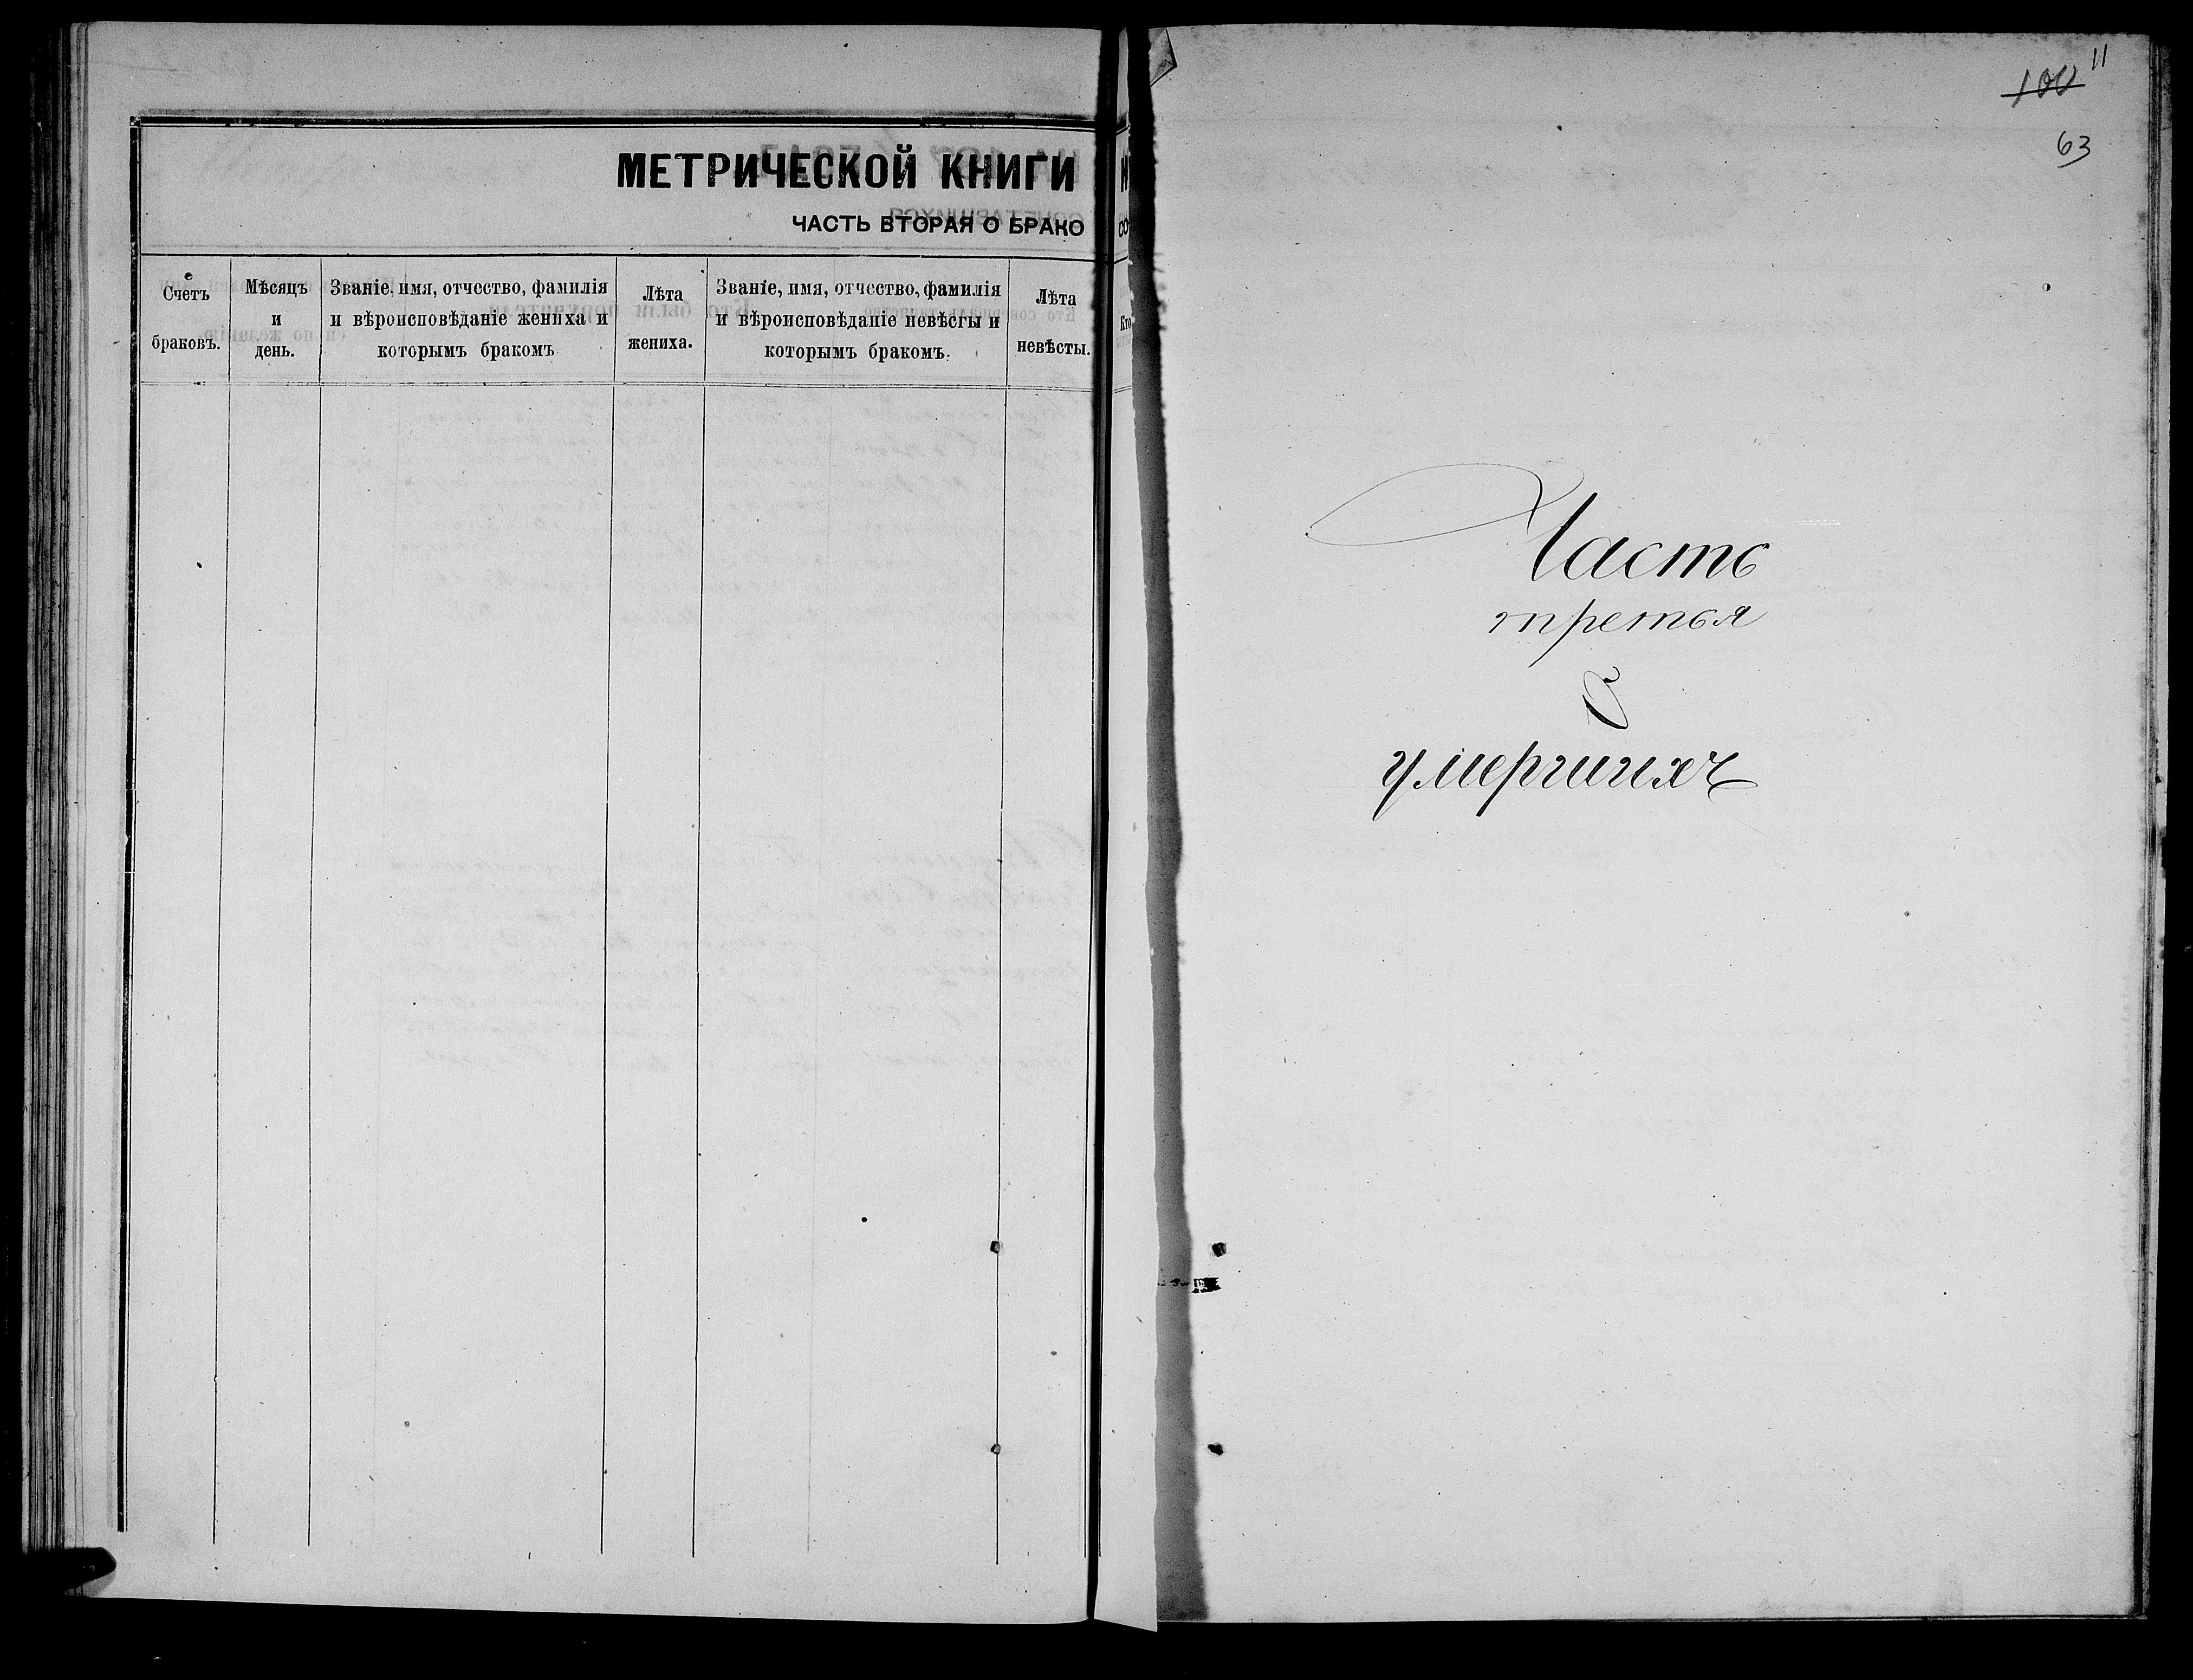 МЕТРИЧЕСКОЙ КНИГИ
ЧАСТЬ ВТОРАЯ О БРАКО
Счетъ браковъ.
Мѣсяцъ и день.
Званіе, имя, отчество, фамилія и вѣроисповѣданіе жениха и которымъ бракомъ
Лѣта жениха.
Званіе, имя, отчество, фамилія и вѣроисповѣданіе невѣсты и которымъ бракомъ.
Лѣта невѣсты.
11
100
63
Часть
третья
О
умершихъ